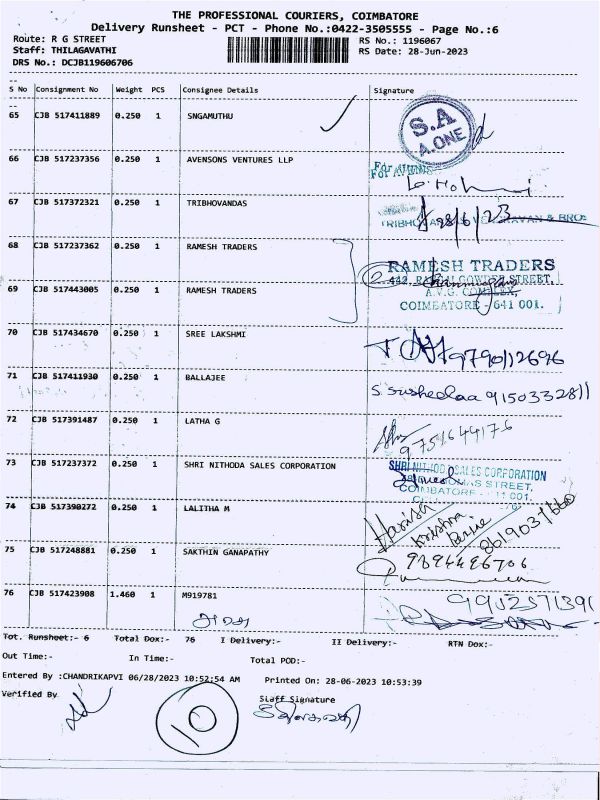 THE PROFESSIONAL COURIERS, COIMBATORE
Delivery Runsheet - PCT - Phone No.:0422-3505555 - Page No.:6
Route: R G STREET
RS No.: 1196067
Staff: THILAGAVATHI
RS Date: 28-Jun-2023
DRS No.: DCJB119606706
S No Consignment No Weight PCS Consignee Details Signature
65 CJB 517411889 0.250 1 SNGAMUTHU
S.A
A.ONE
66 CJB 517237356 0.250 1 AVENSONS VENTURES LLP
67 CJB 517372321 0.250 1 TRIBHOVANDAS
28/6/23
& BROS
68 CJB 517237362 0.250 1 RAMESH TRADERS
RAMESH TRADERS
69 CJB 517443005 0.250 1 RAMESH TRADERS
COIMBATORE - 641 001.
70 CJB 517434670 0.250 1 SREE LAKSHMI
9790112696
71 CJB 517411930 0.250 1 BALLAJEE
S Susheelaa 9150332811
72 CJB 517391487 0.250 1 LATHA G
9751644176
73 CJB 517237372 0.250 1 SHRI NITHODA SALES CORPORATION
SHRI NITHODA SALES CORPORATION
74 CJB 517390272 0.250 1 LALITHA M
Harish
Krishna
75 CJB 517248881 0.250 1 SAKTHIN GANAPATHY
9894486706
76 CJB 517423908 1.460 1 M919781
Tot. Runsheet:- 6 Total Dox:- 76 I Delivery:- II Delivery:- RTN Dox:-
Out Time:- In Time:- Total POD:-
Entered By :CHANDRIKAPVI 06/28/2023 10:52:54 AM Printed On: 28-06-2023 10:53:39
Verified By
Staff Signature
10